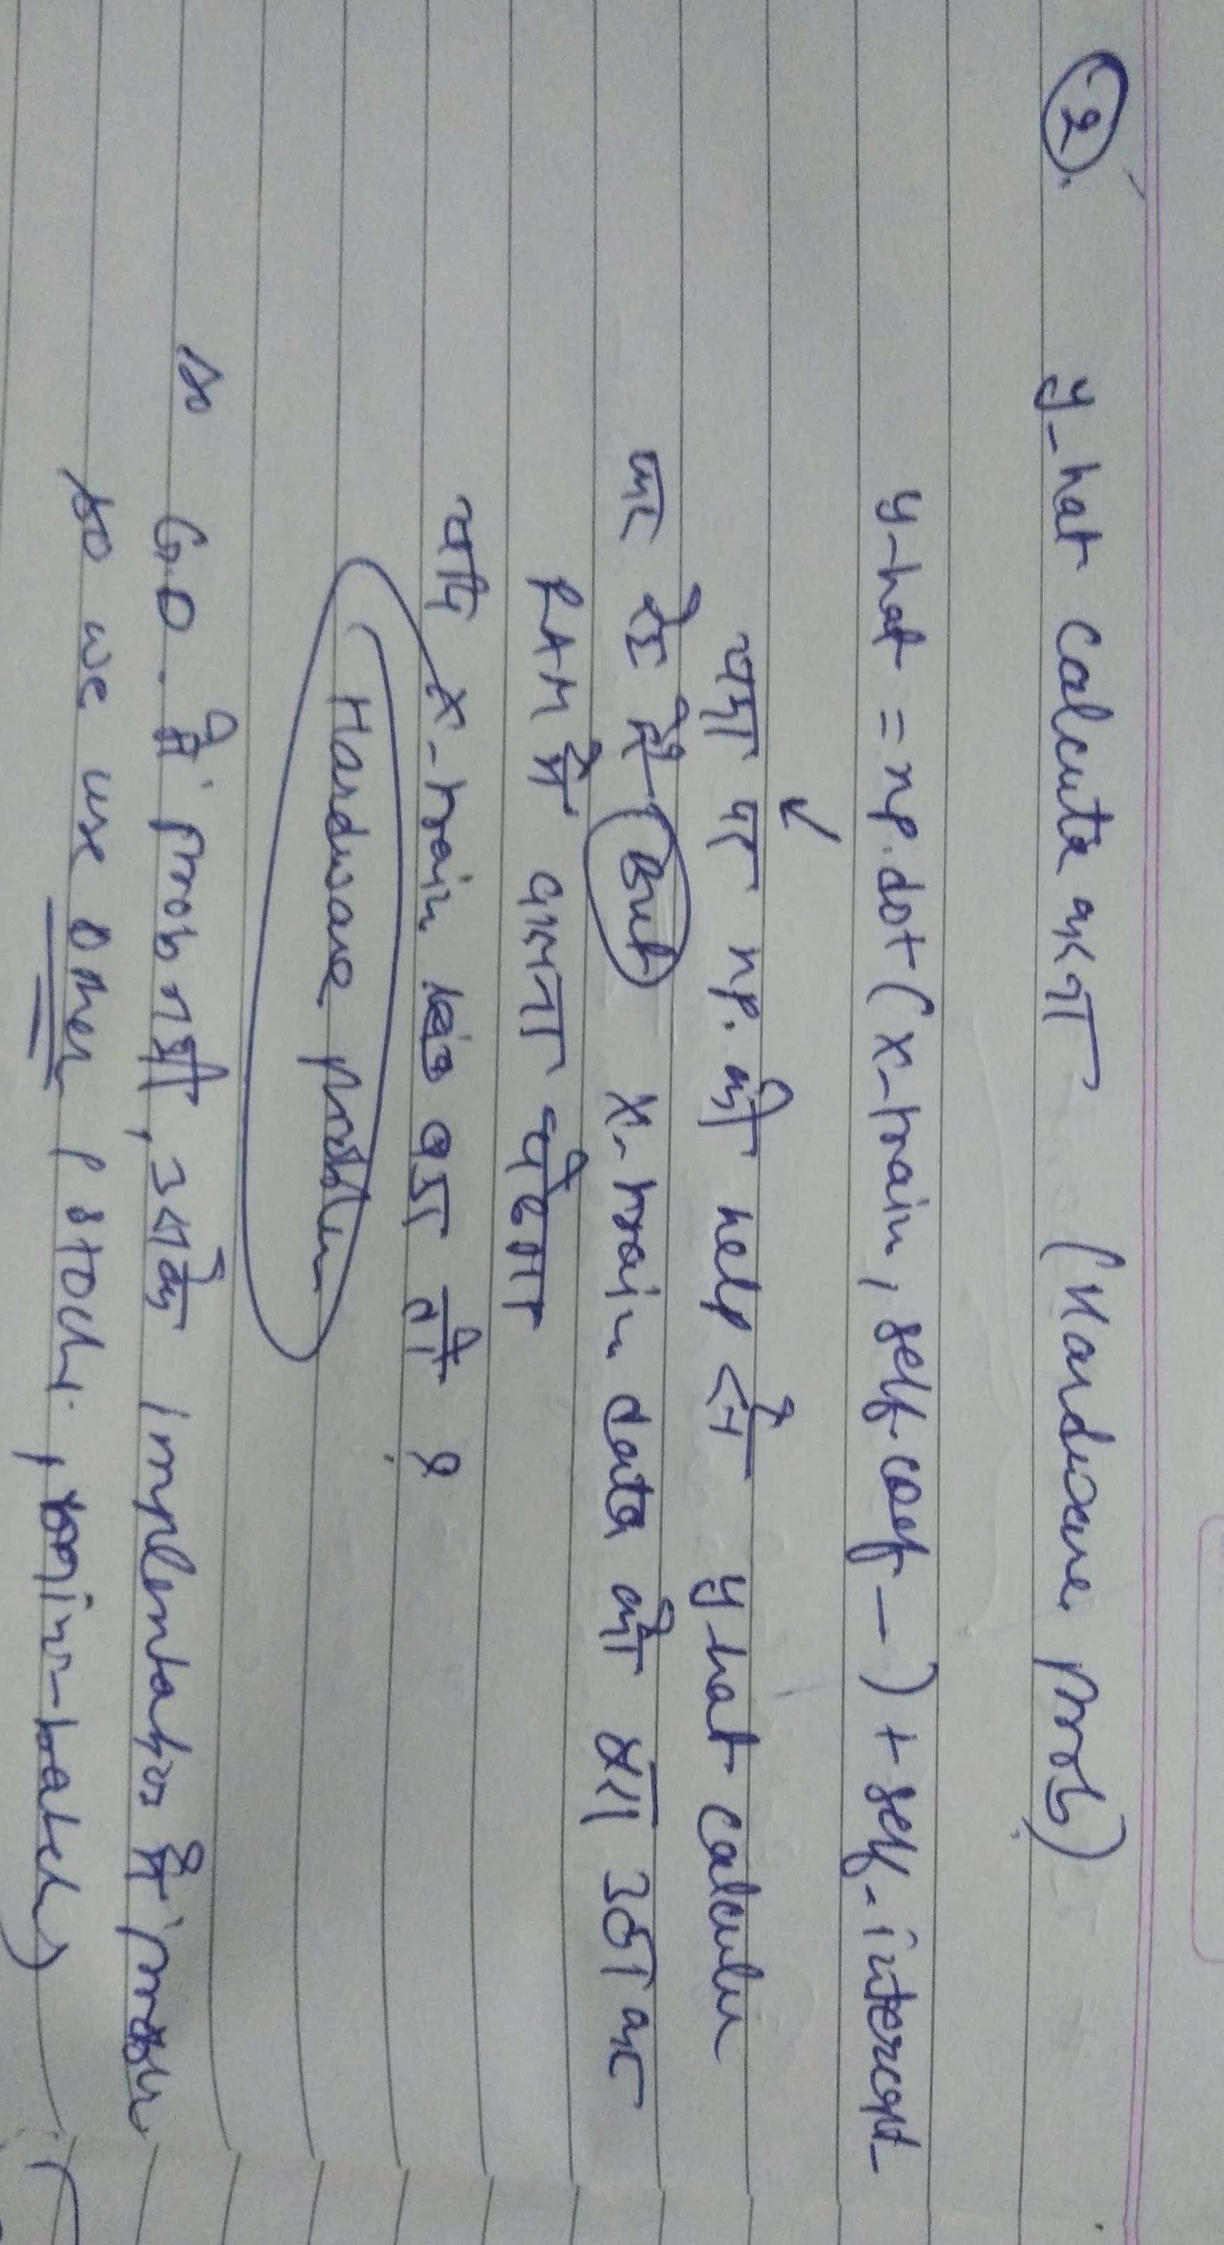 ②. y-hat calcute करना (Hardware prob)
y-hat = np.dot(x-train, self.coef_) + self.intercept_
यहा पर np. की help से y-hat calculu
कर रहे हैं But x-train data को यहा उठा कर
RAM में डालना पडेगा
यदि x-train बड़ा तो ?
Hardware problem
so G.D. में prob नहीं, उसके implentation में problem
so we use other (stoch., mini-batch)